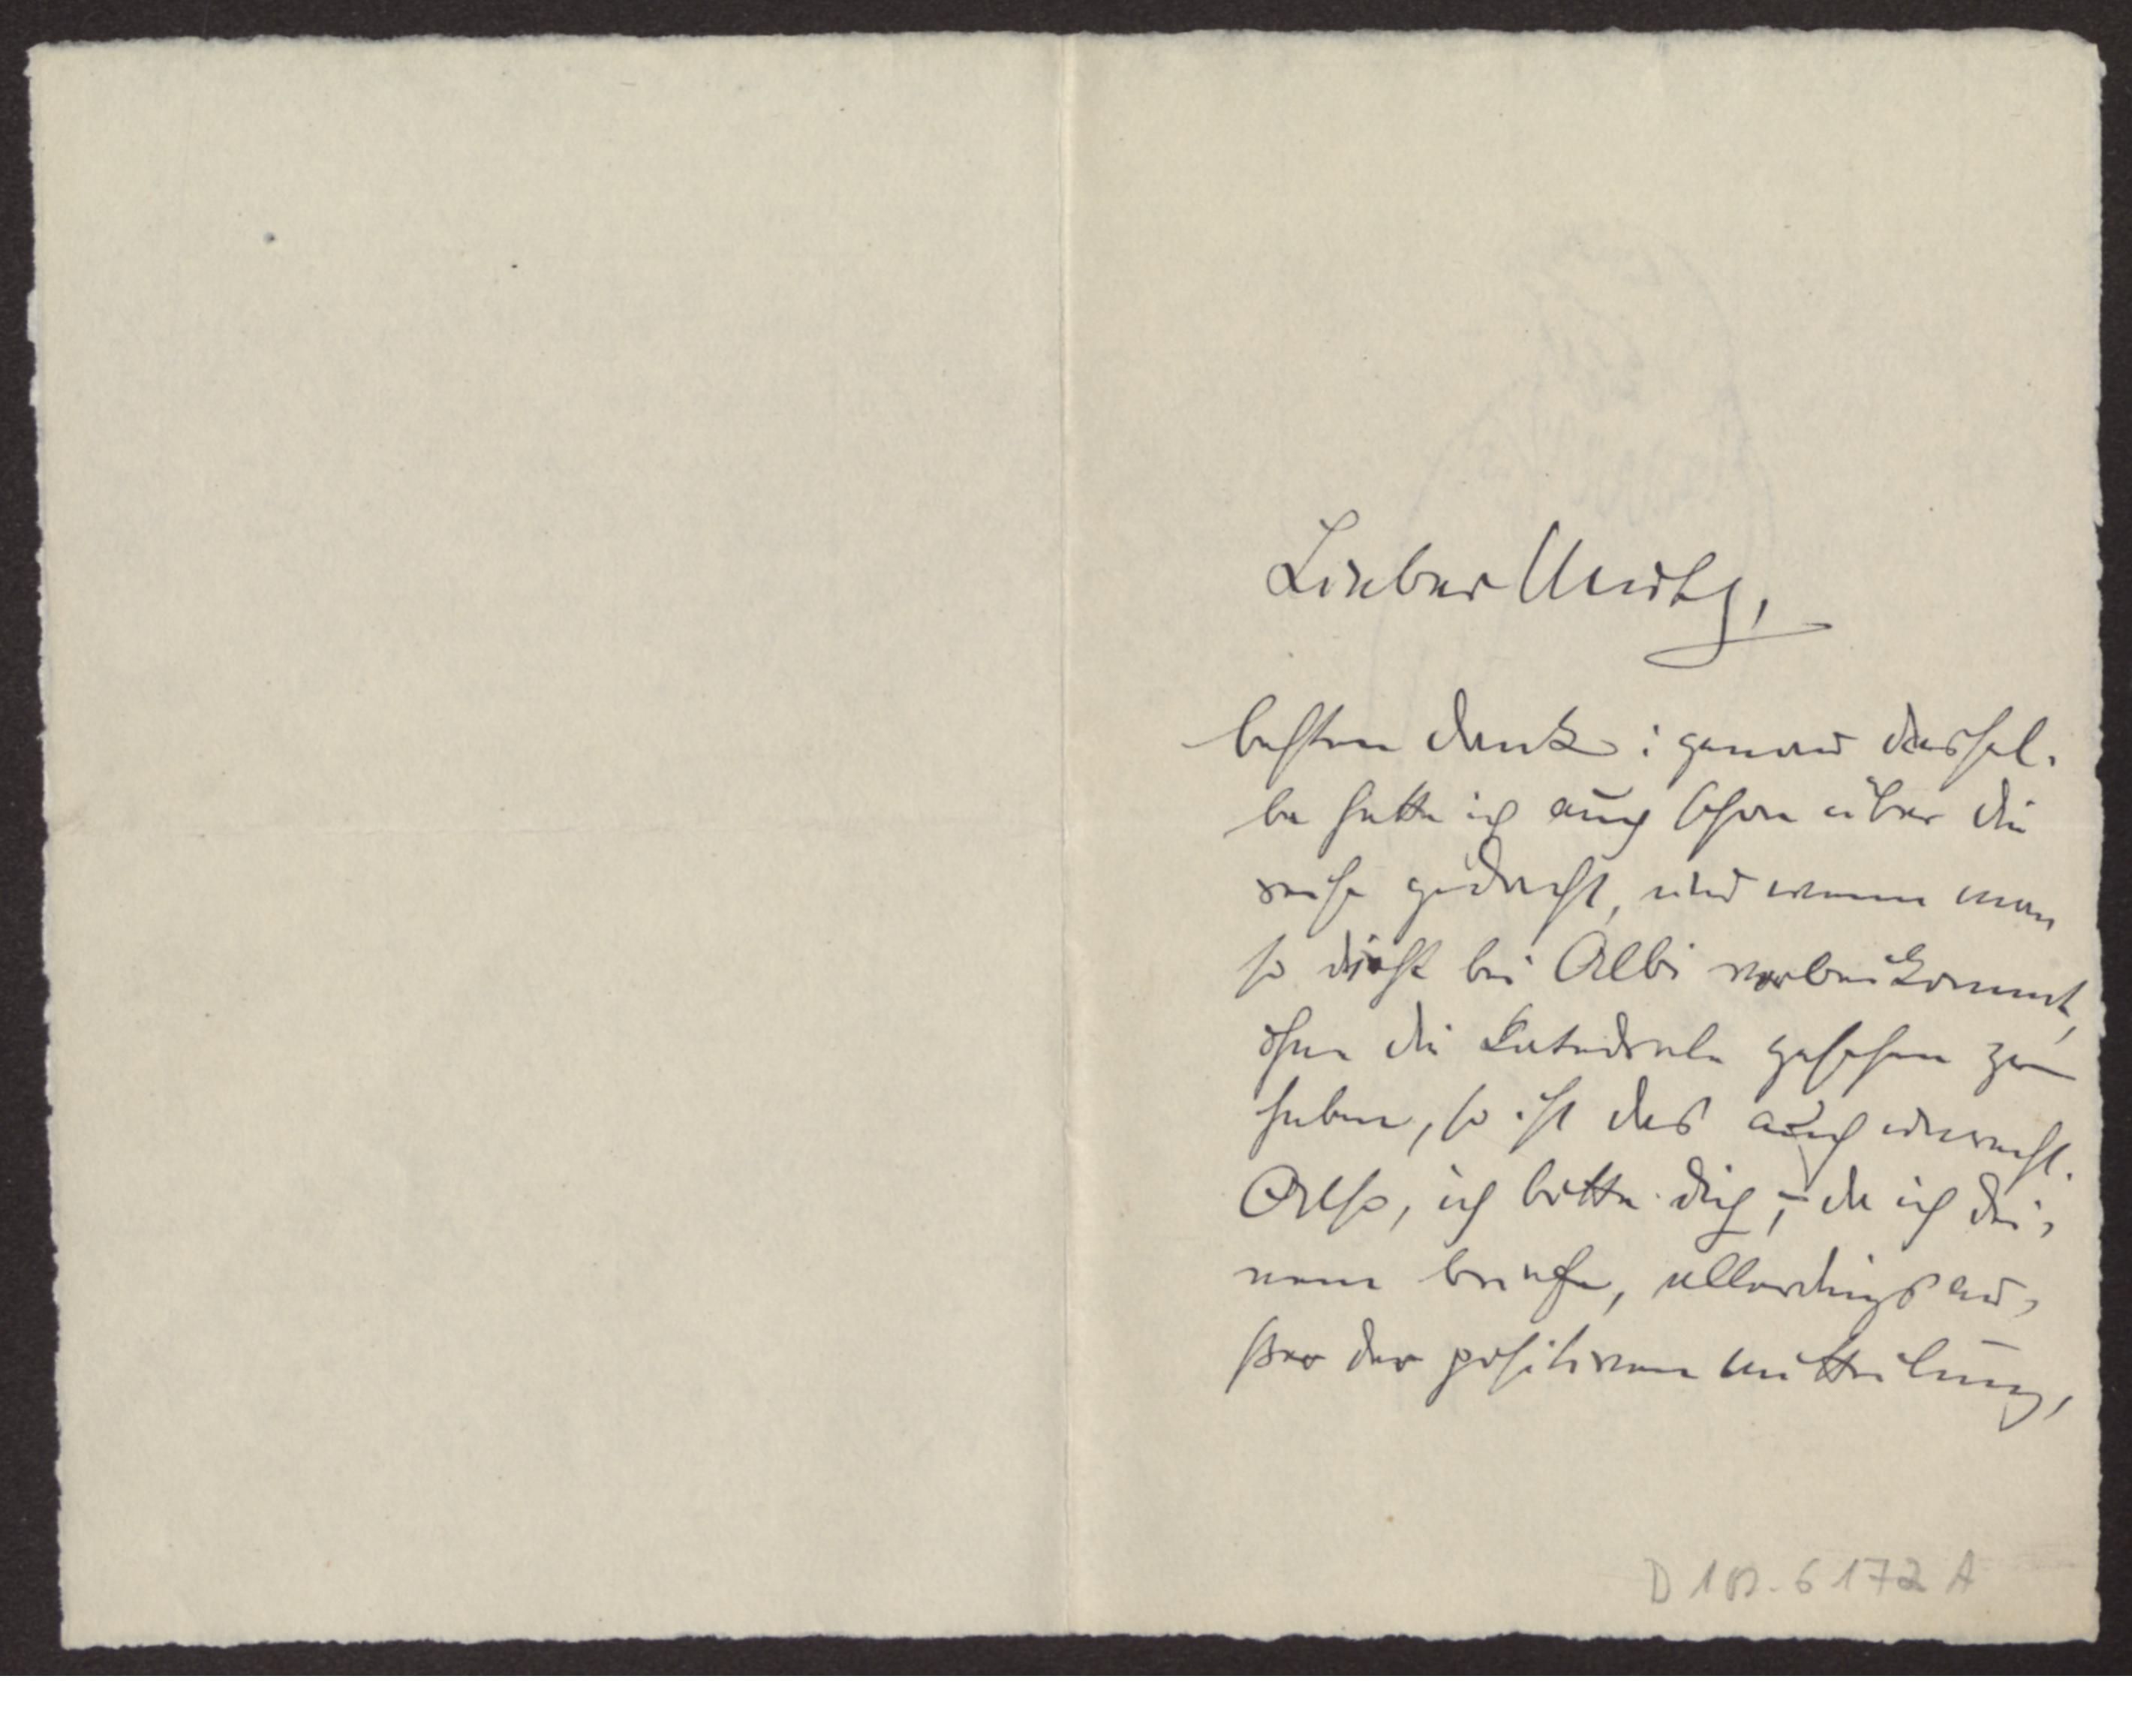 Lieber Moritz,
besten dank: genau dassel-
be hatte ich auch schon über die
reise gedacht, und wenn man
so dicht bei Albi vorbeikommt,
ohne die katedrale gesehen zu
haben, so ist das auch unrecht.
Also, ich bitte dich, – da ich dei-
nem briefe, allerdings au-
sser der positiven mitteilung,
D 1 6172 A